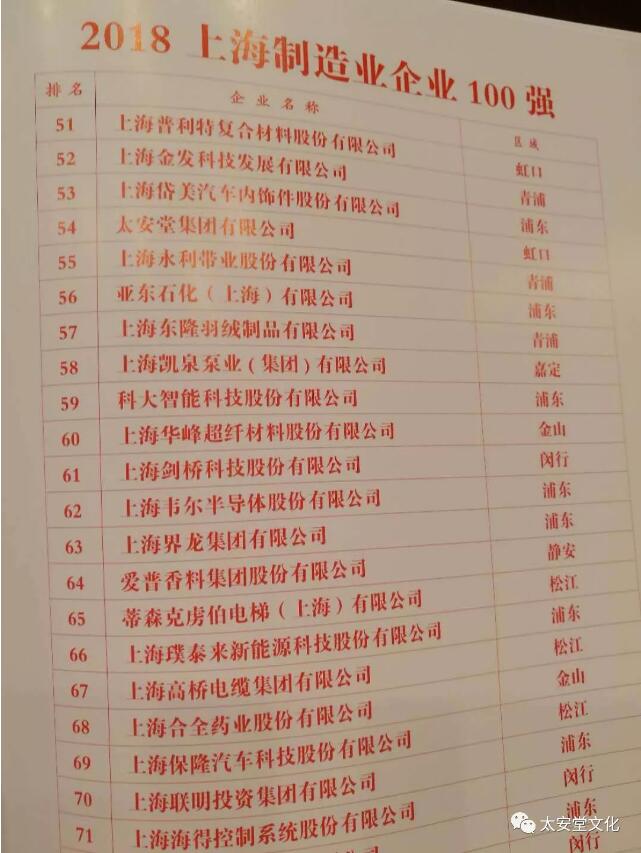 2018 上海制造业企业 100 强
排名 企业名称 区域
51 上海普利特复合材料股份有限公司 虹口
52 上海金发科技发展有限公司 青浦
53 上海岱美汽车内饰件股份有限公司 浦东
54 太安堂集团有限公司 虹口
55 上海永利带业股份有限公司 青浦
56 亚东石化（上海）有限公司 浦东
57 上海东隆羽绒制品有限公司 青浦
58 上海凯泉泵业（集团）有限公司 嘉定
59 科大智能科技股份有限公司 浦东
60 上海华峰超纤材料股份有限公司 金山
61 上海剑桥科技股份有限公司 闵行
62 上海韦尔半导体股份有限公司 浦东
63 上海界龙集团有限公司 浦东
64 爱普香料集团股份有限公司 静安
65 蒂森克虏伯电梯（上海）有限公司 松江
66 上海璞泰来新能源科技股份有限公司 浦东
67 上海高桥电缆集团有限公司 松江
68 上海合全药业股份有限公司 金山
69 上海保隆汽车科技股份有限公司 松江
70 上海联明投资集团有限公司 浦东
71 上海海得控制系统股份有限公司 闵行
浦东
太安堂文化